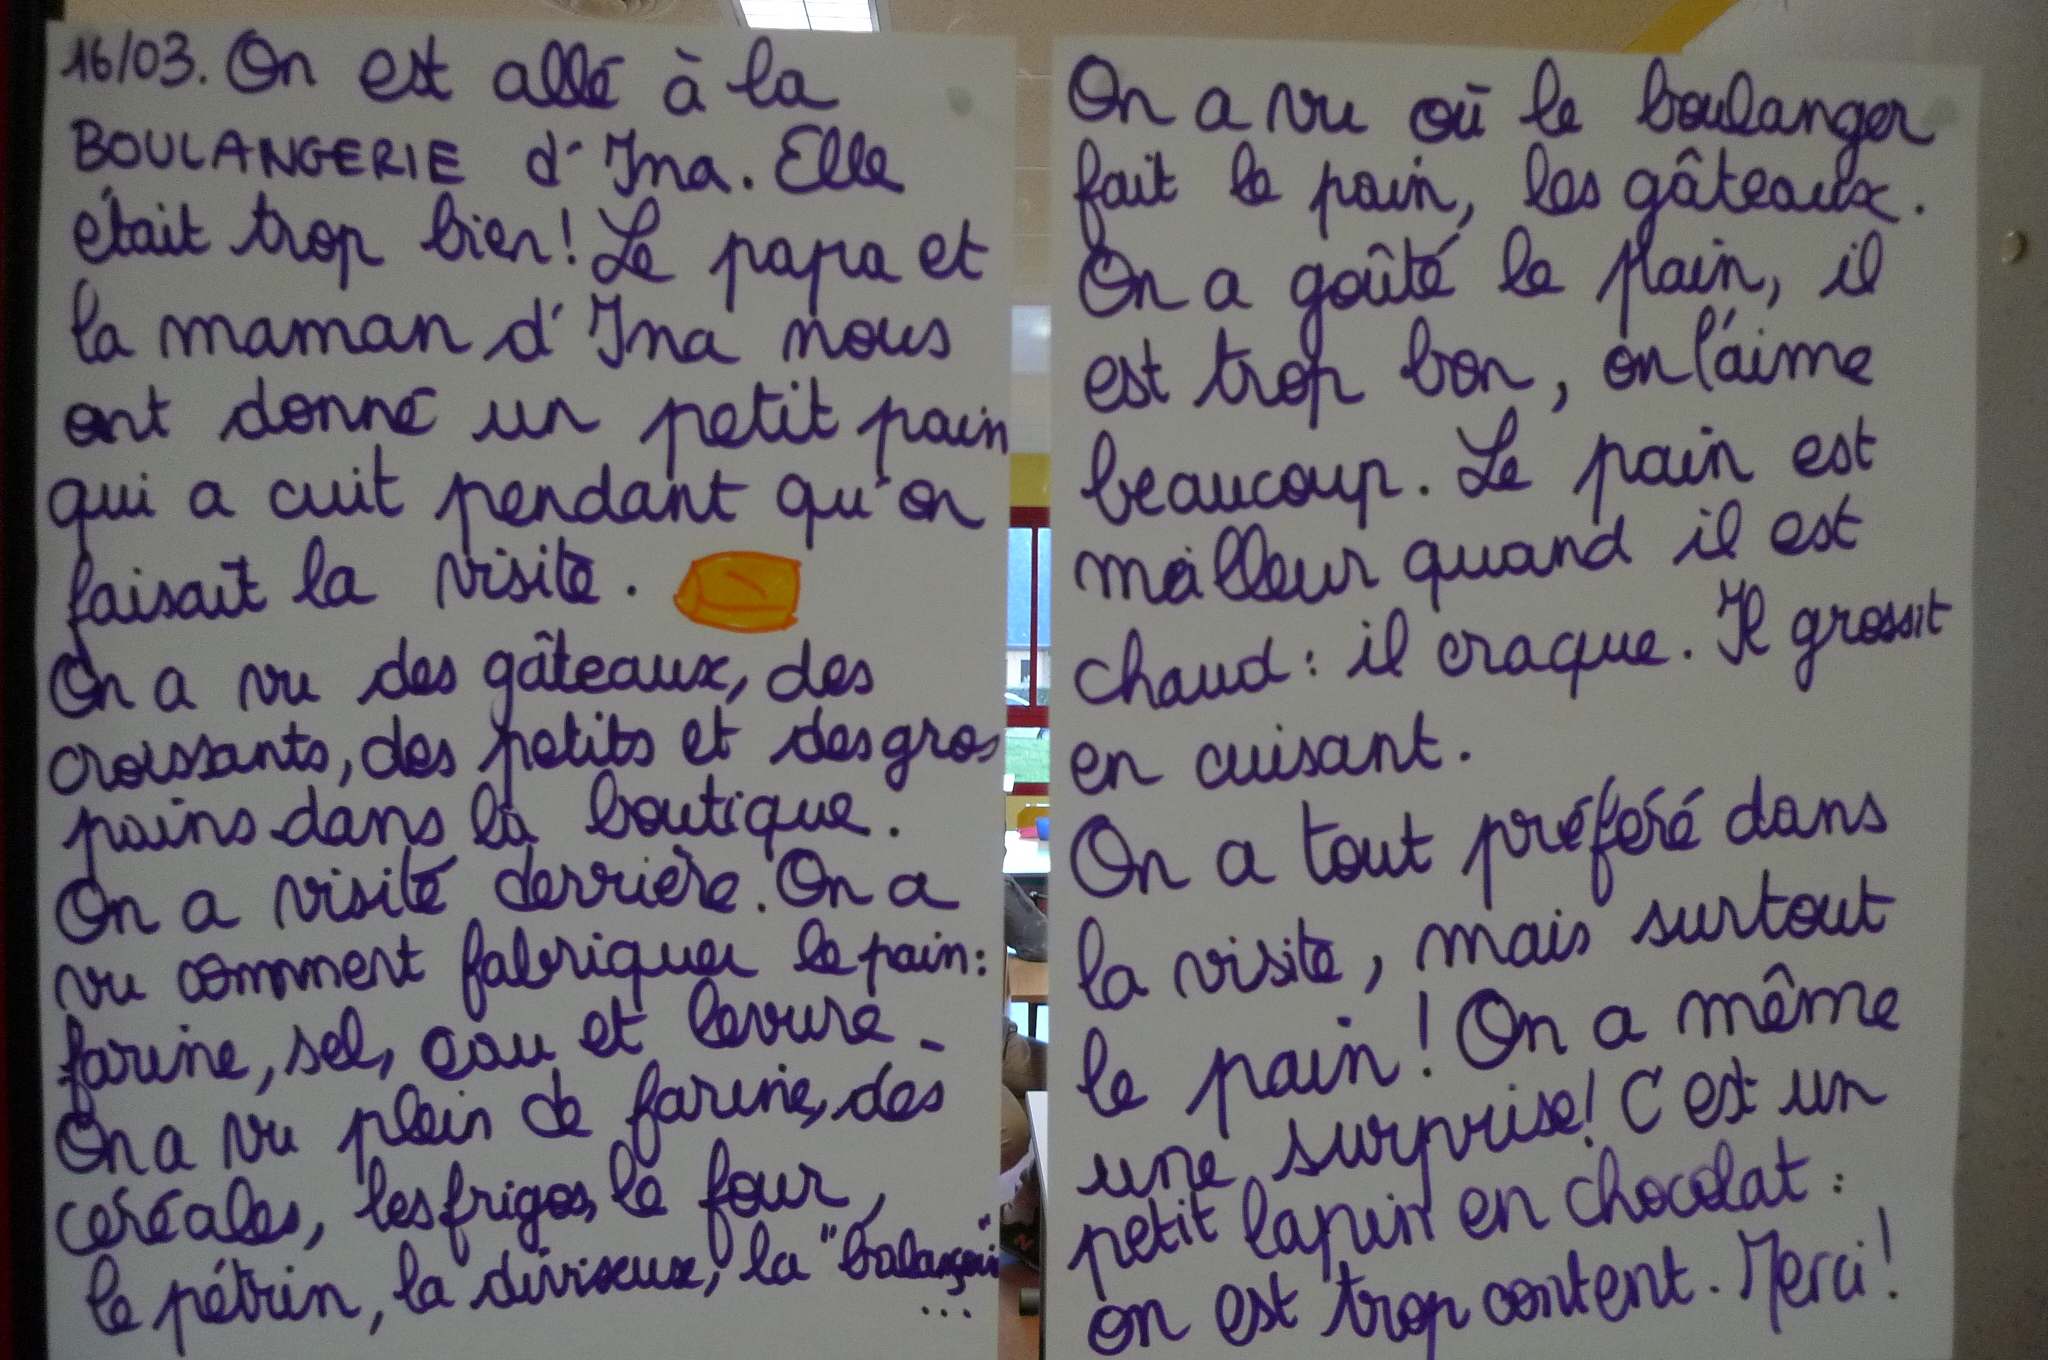 16/03. On est allé à la
BOULANGERIE d'Ina. Elle
était trop bien! Le papa et
la maman d'Ina nous
ont donné un petit pain
qui a cuit pendant qu'on
faisait la visite.
On a vu des gâteaux, des
croissants, des petits et des gros
pains dans la boutique.
On a visité derrière. On a
vu comment fabriquer le pain:
farine, sel, eau et levure.
On a vu plein de farine, des
céréales, les frigos, le four,
le pétrin, la diviseuse, la "balançoire"
...
On a vu où le boulanger
fait le pain, les gâteaux.
On a goûté le pain, il
est trop bon, on l'aime
beaucoup. Le pain est
meilleur quand il est
chaud: il craque. Il grossit
en cuisant.
On a tout préféré dans
la visite, mais surtout
le pain! On a même
une surprise! C'est un
petit lapin en chocolat:
on est trop content. Merci!